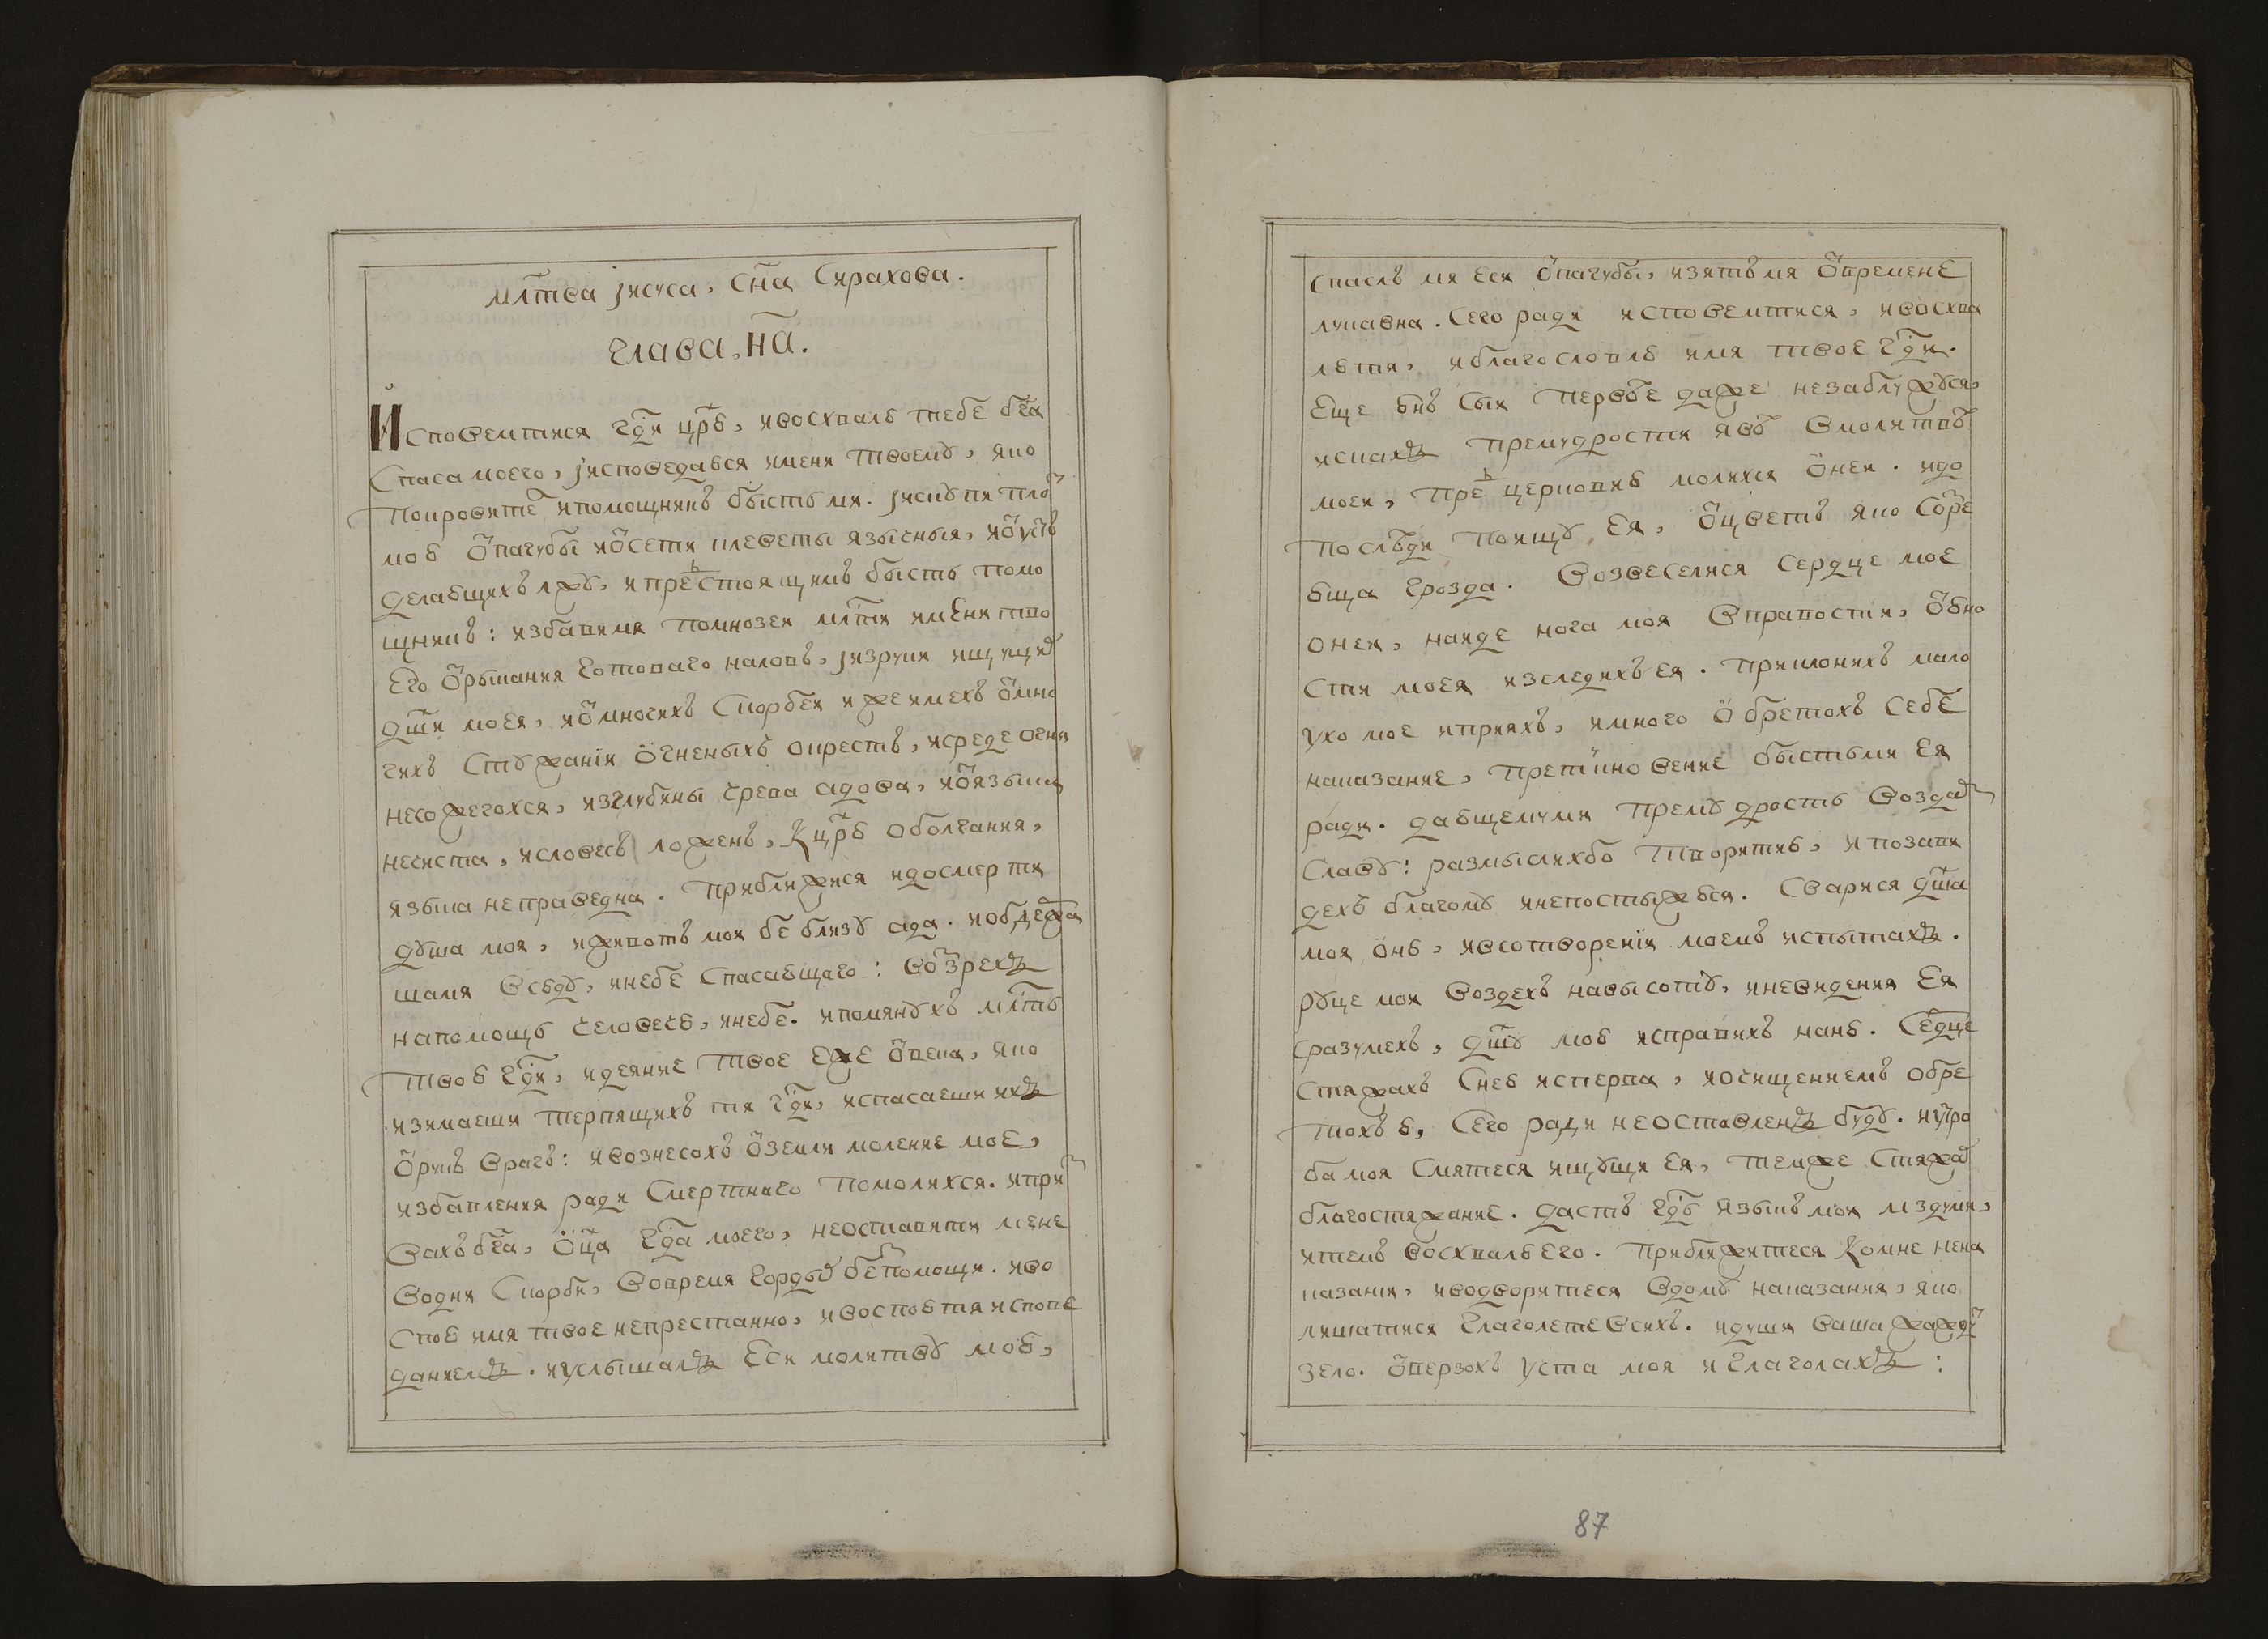 мл҃тва јисуса, сн҃а сирахова.
глава, н҃а.
Исповемтися гд҃и цр҃ю, ивосхвалю тебе бг҃а
спаса моего, јисповедаюся имени твоему, яко
покровите҃ ипомощникъ бысть ми. јискупи пло҃
мою ѿпагубы иѿсети клеветы языкныя, иѿуст҃ъ
делающихъ лжу, ипре҃стоящимъ бысть помо
щникъ: избавимя помнозеи мл҃ти имЕни тво
его ѿрыкания готоваго наловъ, јизруки ищущи҃
дш҃и моея, иѿмногихъ скорбеи ижеимехъ ѿмно
гихъ стужаніи ѿгненыхъ окрестъ, исреде огня
несожегохся, изглубины чрева адова, иѿязыка
нечиста, исловесъ ложенъ, Кцр҃ю оболгания,
языка неправедна. приближися идосмерти
душа моя, иживотъ мои бе близу ада. иобдержа
шамя всюду, инебе спасающаго: во҃зрехъ
напомощь человечю, инебе. ипомянухъ мл҃ть
твою гд҃и, идеяние твое еже ѿвека, яко
изимаеши терпящихъ тя гд҃и, испасаеши ихъ
ѿрукъ врагъ: ивознесохъ ѿземли моление мое,
избавления ради смертнаго помолихся. ипри҃
вахъ бг҃а, ѿц҃а гд҃а моего, неоставити мене
водни скорби, вовремя горды҃ бе҃помощи. иво
спою имя твое непрестанно, ивоспоютя испове
даниемъ. иуслышалъ еси молитву мою,
спаслъ мя еси ѿпагубы, изятъмя ѿвремене
лукавна. Сего ради исповемтися, ивосхва
лютя, иблагословлю имя твое гд҃и.
Еще юнъ сыи первое даже незаблужуся,
искахъ премудрости явѣ вмолитвѣ
моеи, пре҃ церковию моляхся ѿнеи. идо
послѣди поищу ея, ѿцветъ яко со҃ре
юща грозда. Возвеселися сердце мое
онеи, наиде нога моя вправости, ѿюно
сти моея изследихъея. приклонихъ мало
ухо мое иприяхъ, имного ѿбретохъ себе
наказание, преткновение бысть ми ея
ради. дающемуми премудрость возда҃
славу: размыслихбо творитию, ипозави
дехъ благому инепостыжюся. Сварися дш҃а
моя ѿню, ивсотворении моемъ испытахъ.
руце мои воздехъ навысоту, иневидения ея
сразумехъ, дш҃у мою исправихъ наню. Се҃дце
стяжахъ снею исперва, иочищениемъ обре
тохъ ю, сего ради неоставленъ буду. иутро
ба моя смятеся ищущи ея, темже стяжа҃
благостяжание. дастъ гд҃ь языкъ мои мздуми,
итемъ восхвалю его. приближитеся Комне нена
казании, иводворитеся вдому наказания, яко
лишатися глаголете всихъ. идуши ваша жажду҃
зело. ѿверзохъ уста моя и глаголахъ:
87